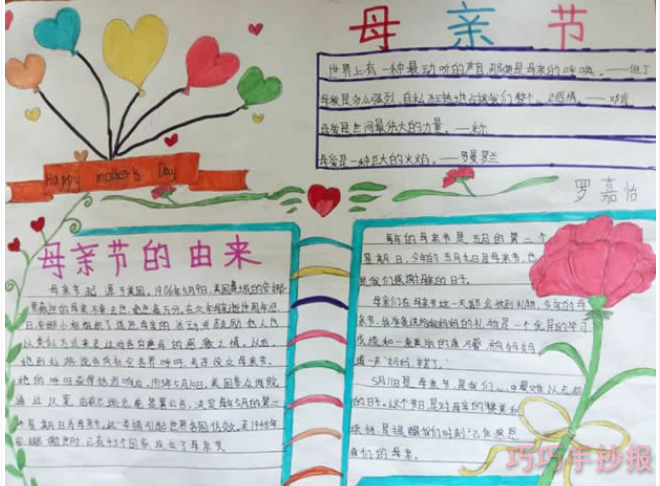 母亲节
世界上有一种最动听的声音,那便是母亲的呼唤。——但丁
母爱是多么强烈、自私、占据我们整个心灵的感情。——邓肯
母爱是世间最伟大的力量。——米尔
母爱是一种巨大的火焰。——罗曼·罗兰
Happy mother's Day
罗嘉怡
母亲节的由来
母亲节起源于美国。1906年5月9日,美国费城的安娜
的母亲不幸去世,她悲痛万分。在次年母亲逝世周年忌
日,安娜小姐组织了追思母亲的活动,并鼓励他人也
以类似方式来表达对各自慈母的感激之情。此后,
她到处游说并向社会各界呼吁,号召设立母亲节。
她的呼吁获得热烈响应。1913年5月10日,美国参众两院
通过决案,由威尔逊总统签署公告,决定每年5月的第二
个星期日为母亲节。这一举措引起世界各国纷纷效仿,至1948年
谢世时,已有43个国家设立了母亲节。
每年的母亲节是五月的第二个
星期日,今年的五月九日是母亲节,也
是我们感谢母亲的日子。
母亲们在母亲节这一天都会收到礼物,今年的母
亲节,我准备送给妈妈的礼物是一个优异的学习
成绩和一束美丽的康乃馨,向妈妈
道一声“妈妈,辛苦了”
5月11日是母亲节,是我们一生中最难以忘却
的日子。这个节日是对母亲的赞美和
我们的母亲。
巧巧手抄报